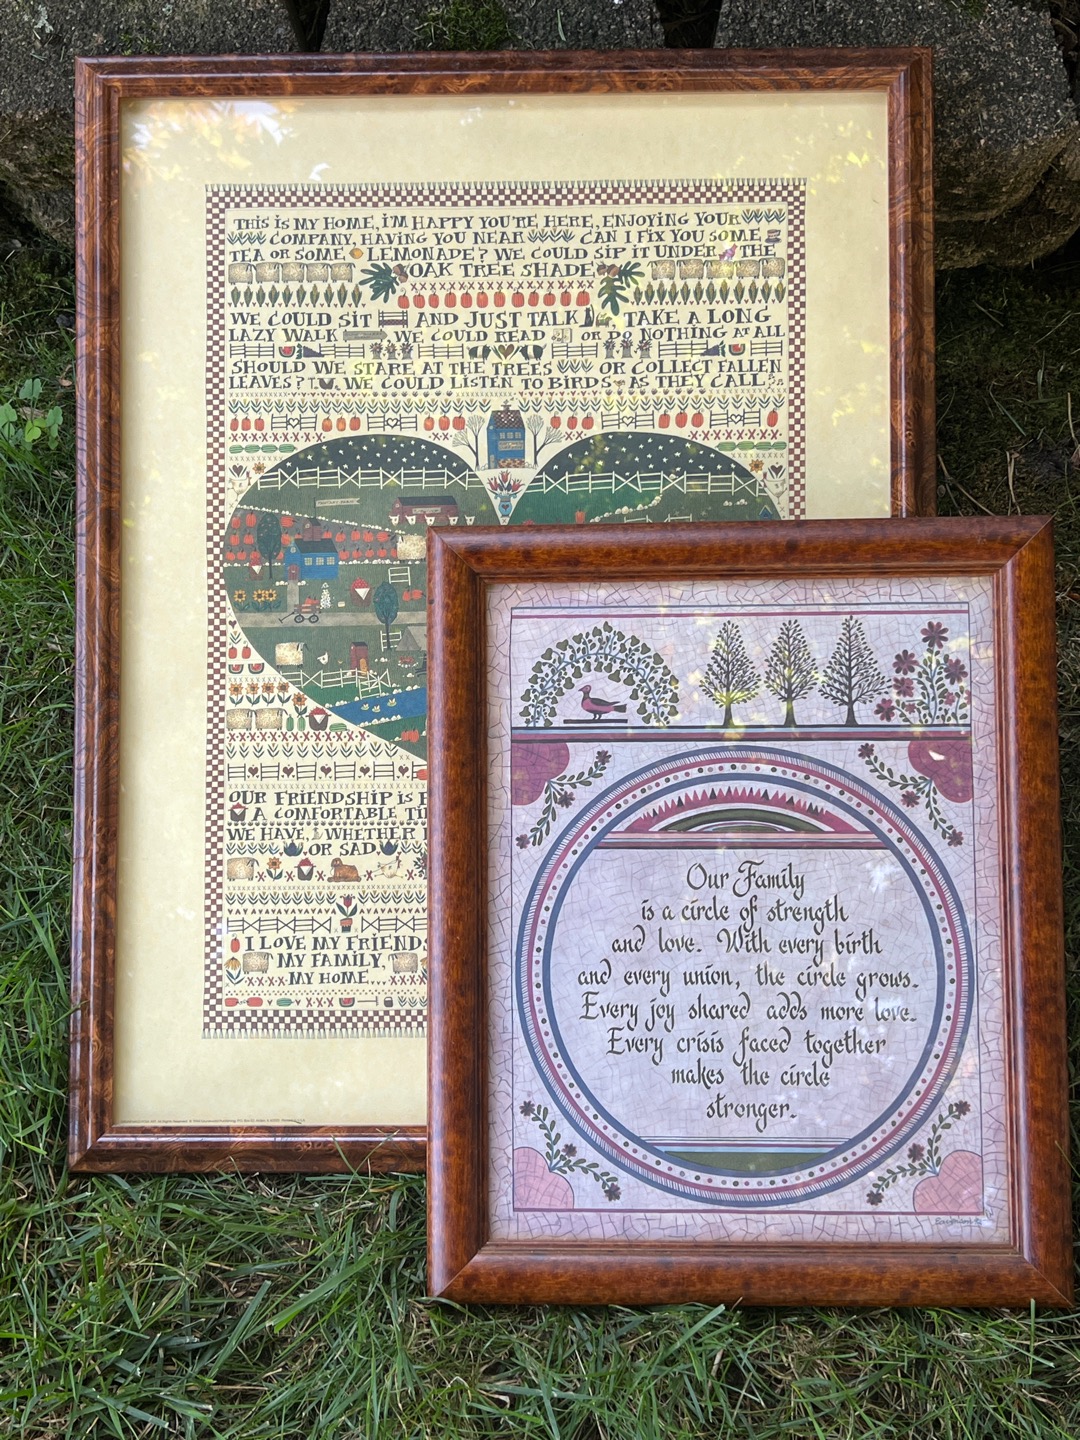 THIS IS MY HOME, I'M HAPPY YOU'RE HERE, ENJOYING YOUR
COMPANY, HAVING YOU NEAR CAN I FIX YOU SOME
TEA OR SOME LEMONADE? WE COULD SIP IT UNDER THE
OAK TREE SHADE
WE COULD SIT AND JUST TALK, TAKE A LONG
LAZY WALK WE COULD READ OR DO NOTHING AT ALL
SHOULD WE STARE AT THE TREES OR COLLECT FALLEN
LEAVES? WE COULD LISTEN TO BIRDS AS THEY CALL
OUR FRIENDSHIP IS
A COMFORTABLE
WE HAVE, WHETHER
OR SAD
I LOVE MY FRIENDS
MY FAMILY,
MY HOME...
Our Family
is a circle of strength
and love. With every birth
and every union, the circle grows.
Every joy shared adds more love.
Every crisis faced together
makes the circle
stronger.